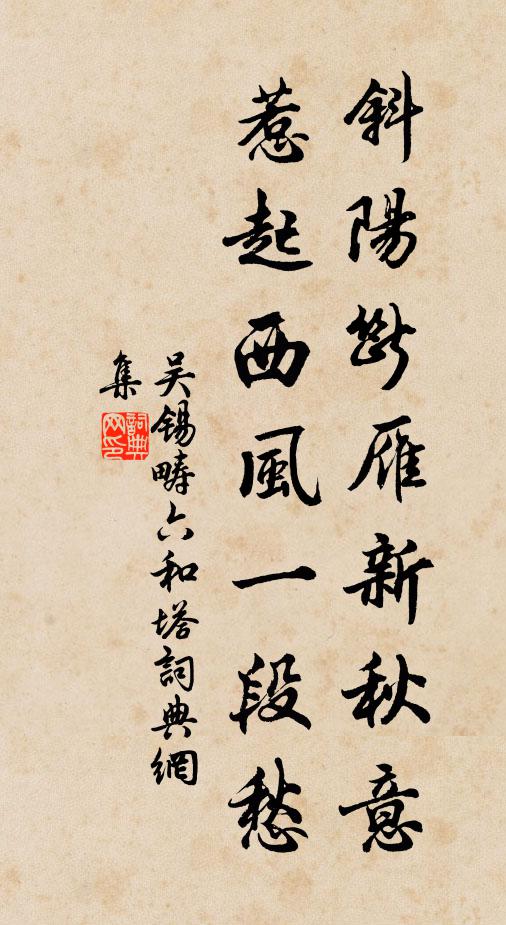 斜陽斷雁新秋意
惹起西風一段愁
吴錫疇六和塔詞典網
集
詞典网印